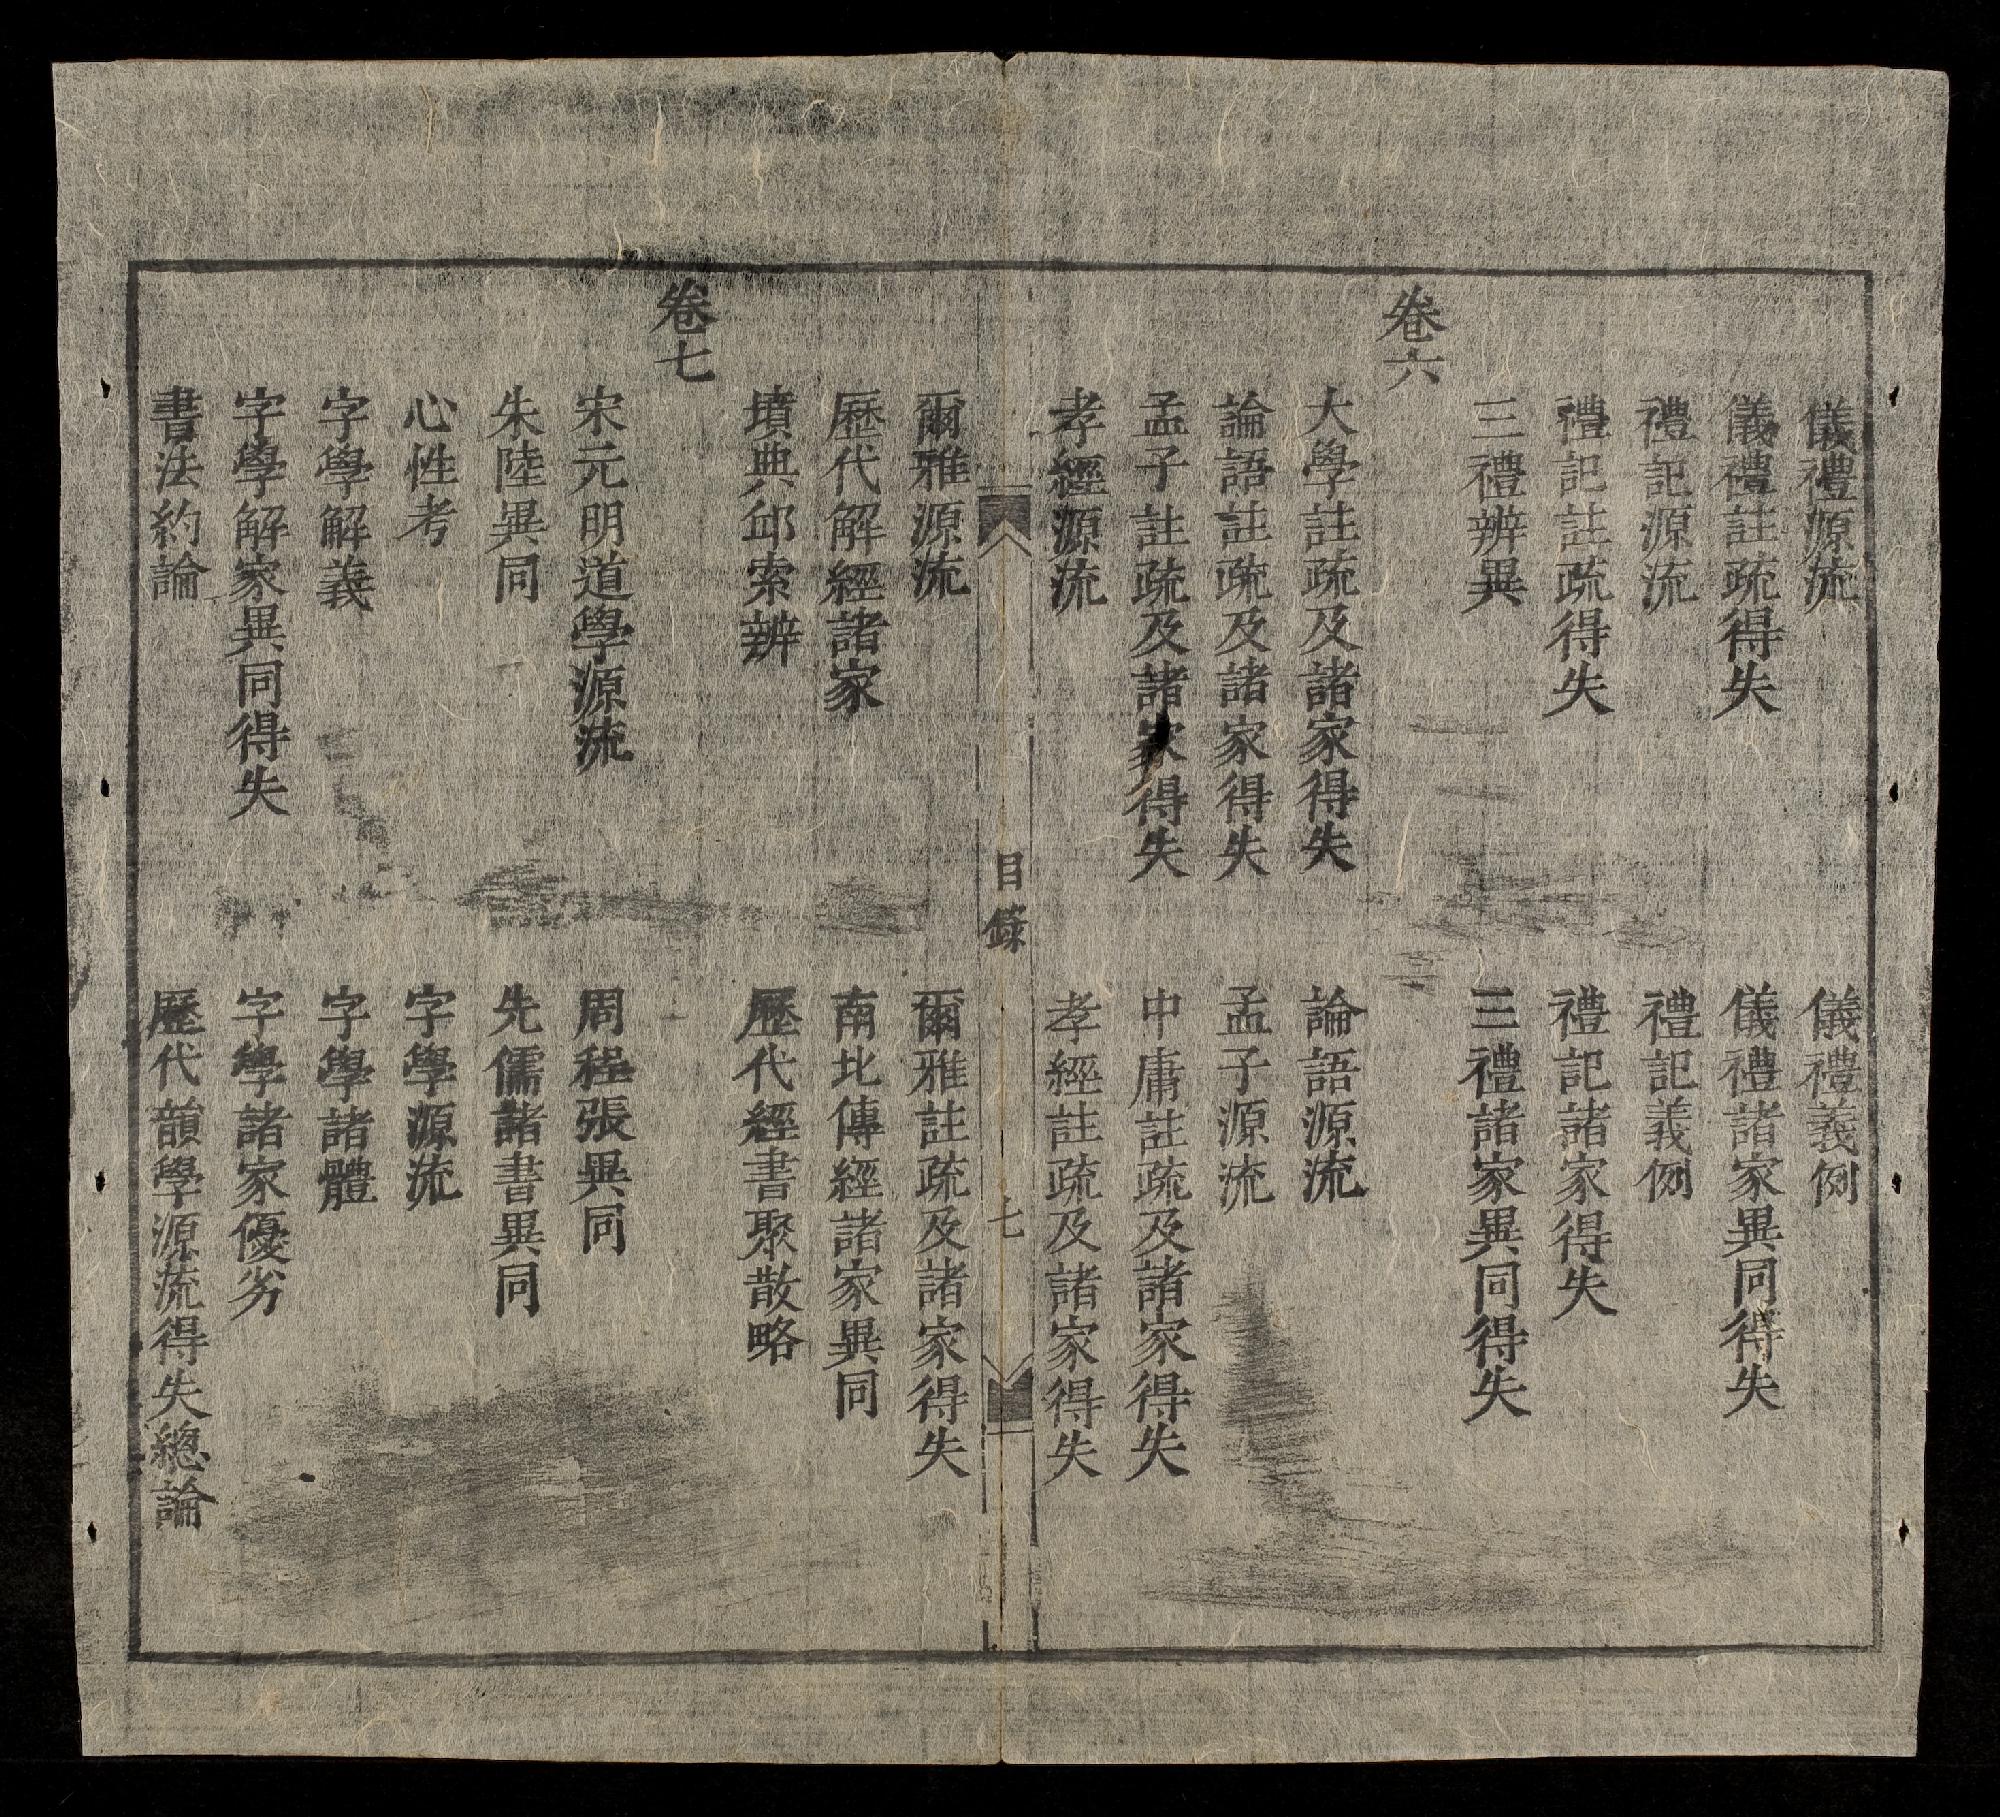 儀禮源流　儀禮義例
儀禮註疏得失　儀禮諸家異同得失
禮記源流　禮記義例
禮記註疏得失　禮記諸家得失
三禮辨異　三禮諸家異同得失
卷六
大學註疏及諸家得失　論語源流
論語註疏及諸家得失　孟子源流
孟子註疏及諸家得失　中庸註疏及諸家得失
孝經源流　孝經註疏及諸家得失
目錄　七
爾雅源流　爾雅註疏及諸家得失
歷代解經諸家　南北傳經諸家異同
墳典邱索辨　歷代經書聚散略
卷七
宋元明道學源流　周程張異同
朱陸異同　先儒諸書異同
心性考　字學源流
字學解義　字學諸體
字學解家異同得失　字學諸家優劣
書法約論　歷代韻學源流得失總論